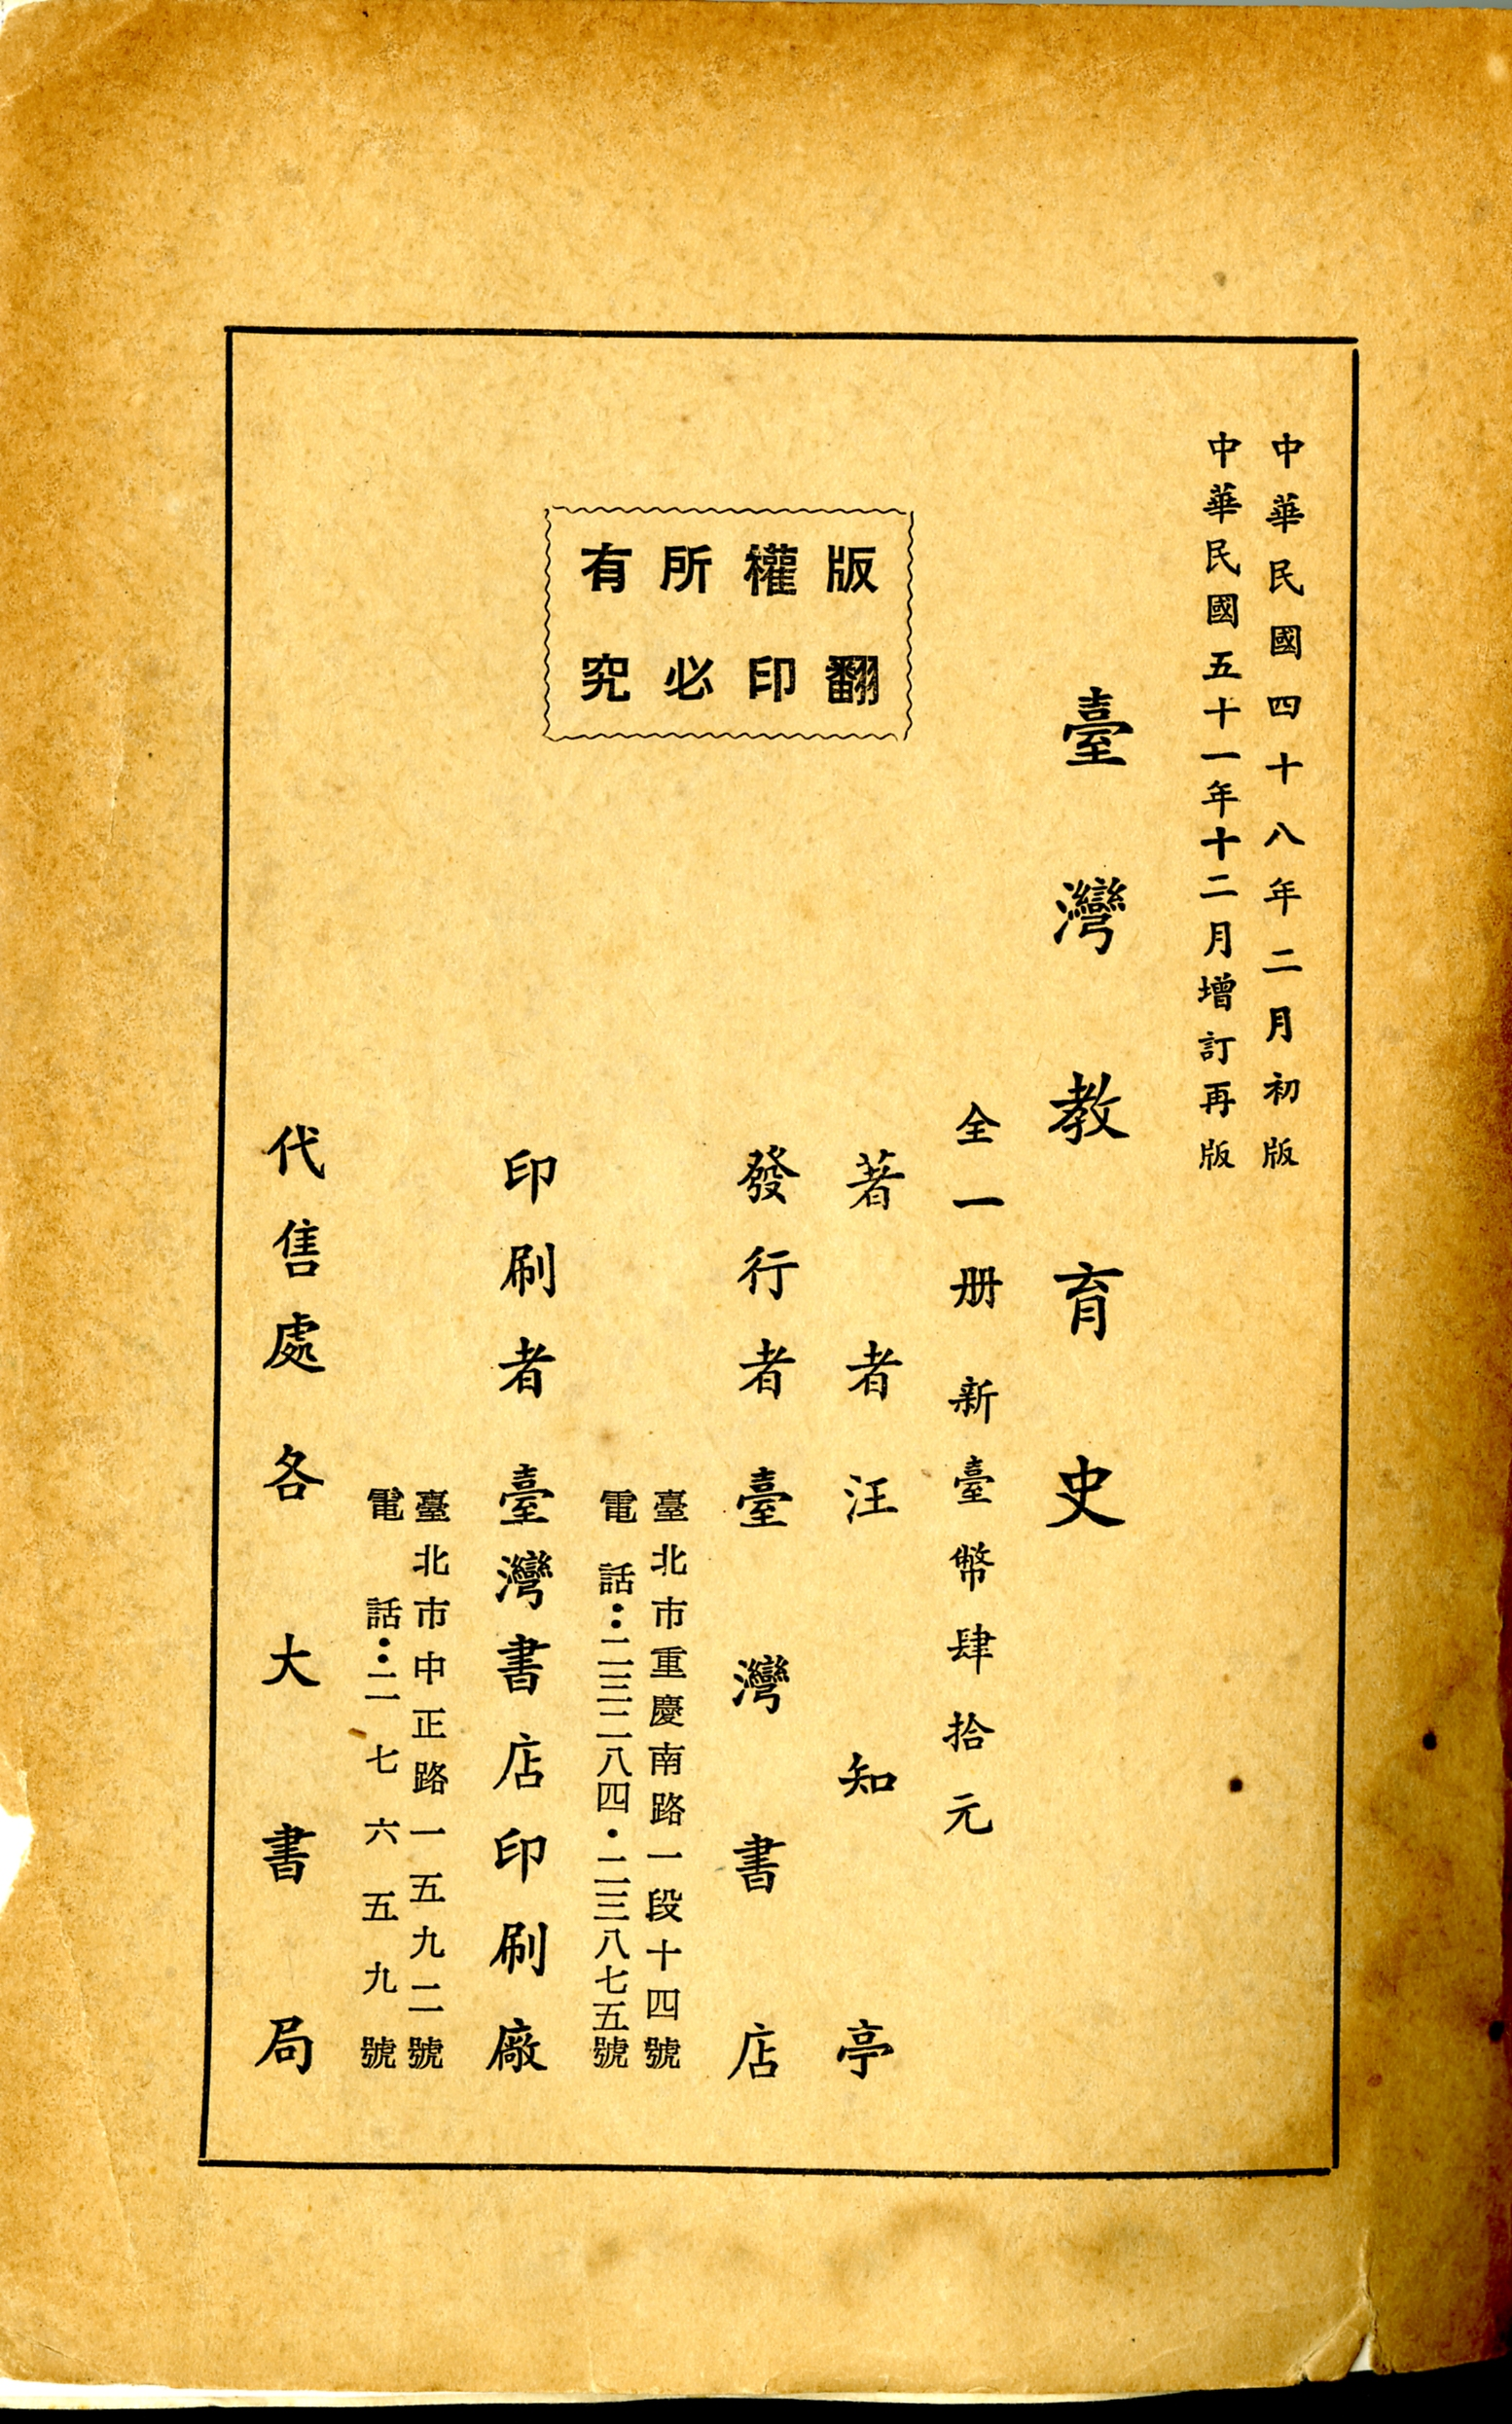 中華民國四十八年二月初版
中華民國五十一年十二月增訂再版
臺灣教育史
全一册 新臺幣肆拾元
著者 汪知亭
發行者 臺灣書店
臺北市重慶南路一段十四號
電話：二三二八四・二三八七五號
印刷者 臺灣書店印刷廠
臺北市中正路一五九二號
電話：二七六五九號
代售處 各大書局
版權所有
翻印必究